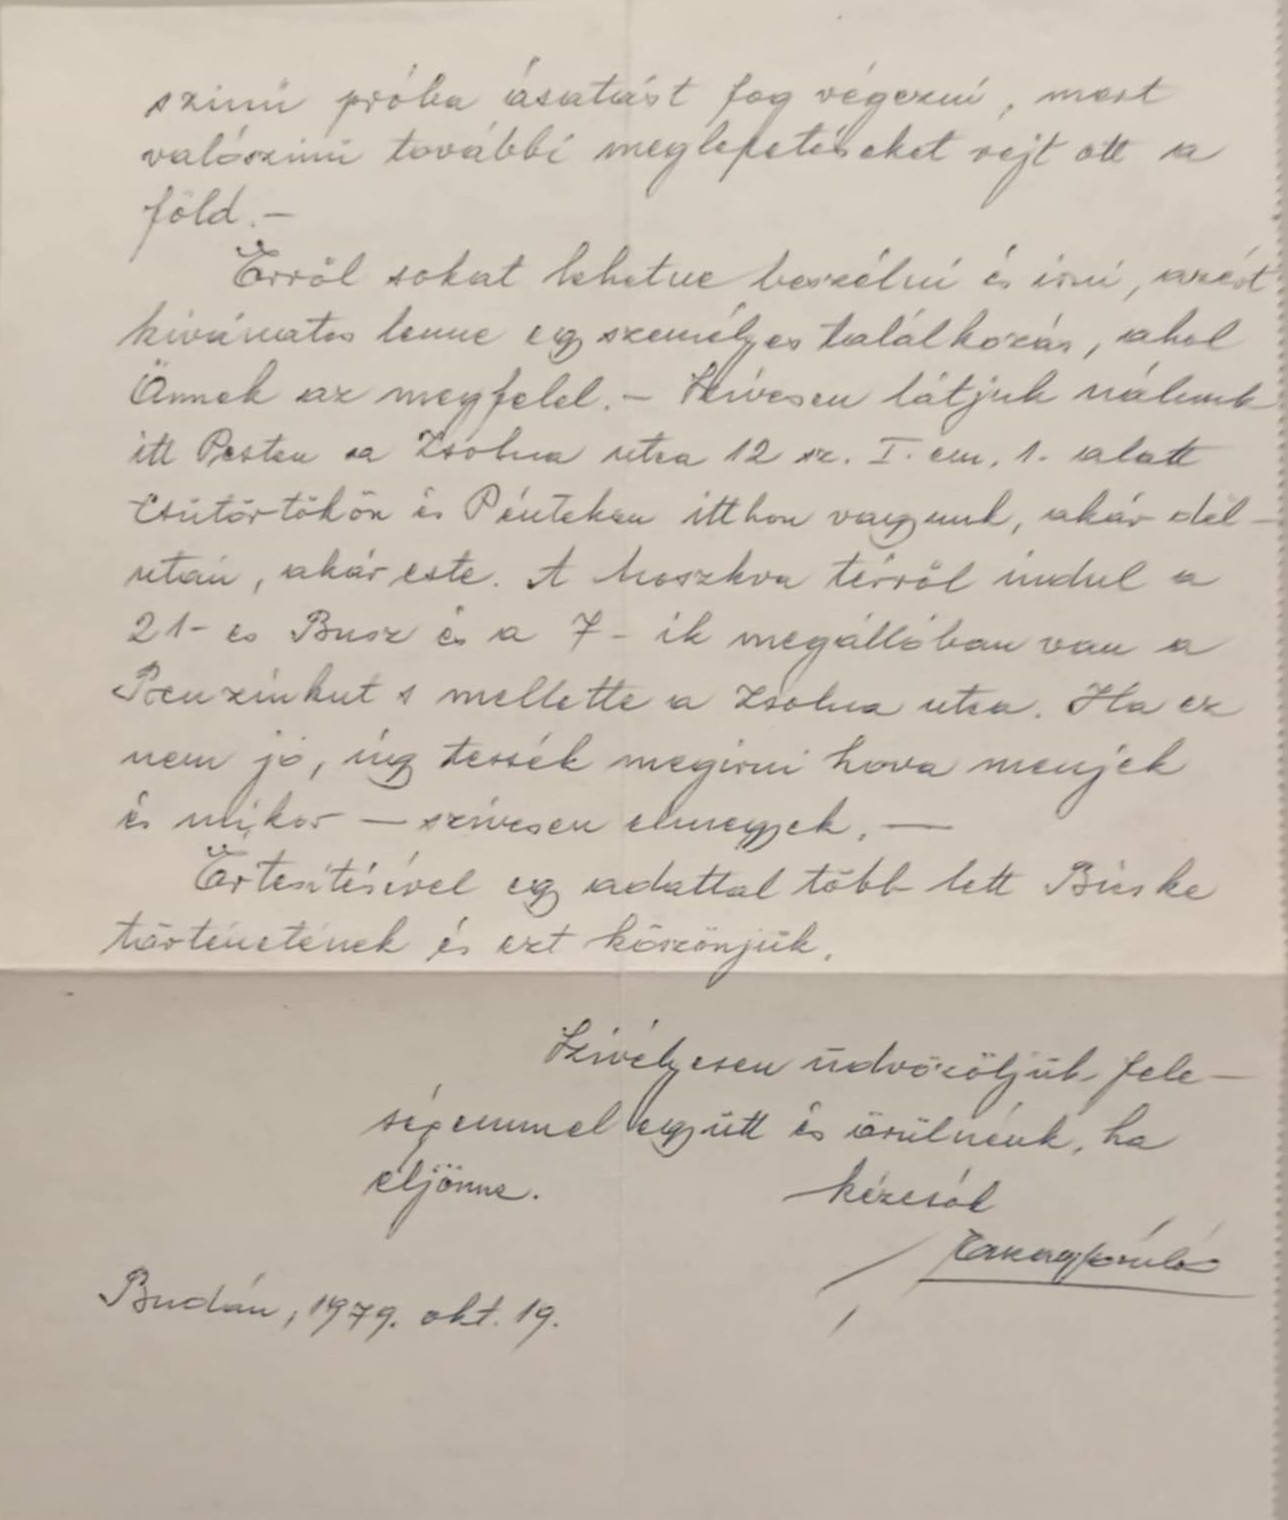 szinü próba ásatást fog végezni, mert
valószinü további meglepetéseket rejt ott a
föld. –
Erről sokat lehetne beszélni és irni, azért
kivánatos lenne egy személyes találkozás, ahol
Önnek az megfelel. – Szivesen látjuk nálunk
itt Pesten a Zsolna utca 12 sz. I. em. 1. alatt
Csütörtökön és Pénteken itthon vagyunk, akár dél-
után, akár este. A Moszkva térről indul a
21- es Busz és a 7- ik megállóban van a
Benzinkut s mellette a Zsolna utca. Ha ez
nem jó, úgy tessék megirni hova menjek
és mikor – szivesen elmegyek. –
Értesitésével egy adattal több lett Bicske
történetének és ezt köszönjük.
Szivélyesen üdvözöljük fele-
ségemmel együtt és örülnénk, ha
eljönne.
kézcsók
Budán, 1979. okt. 19.